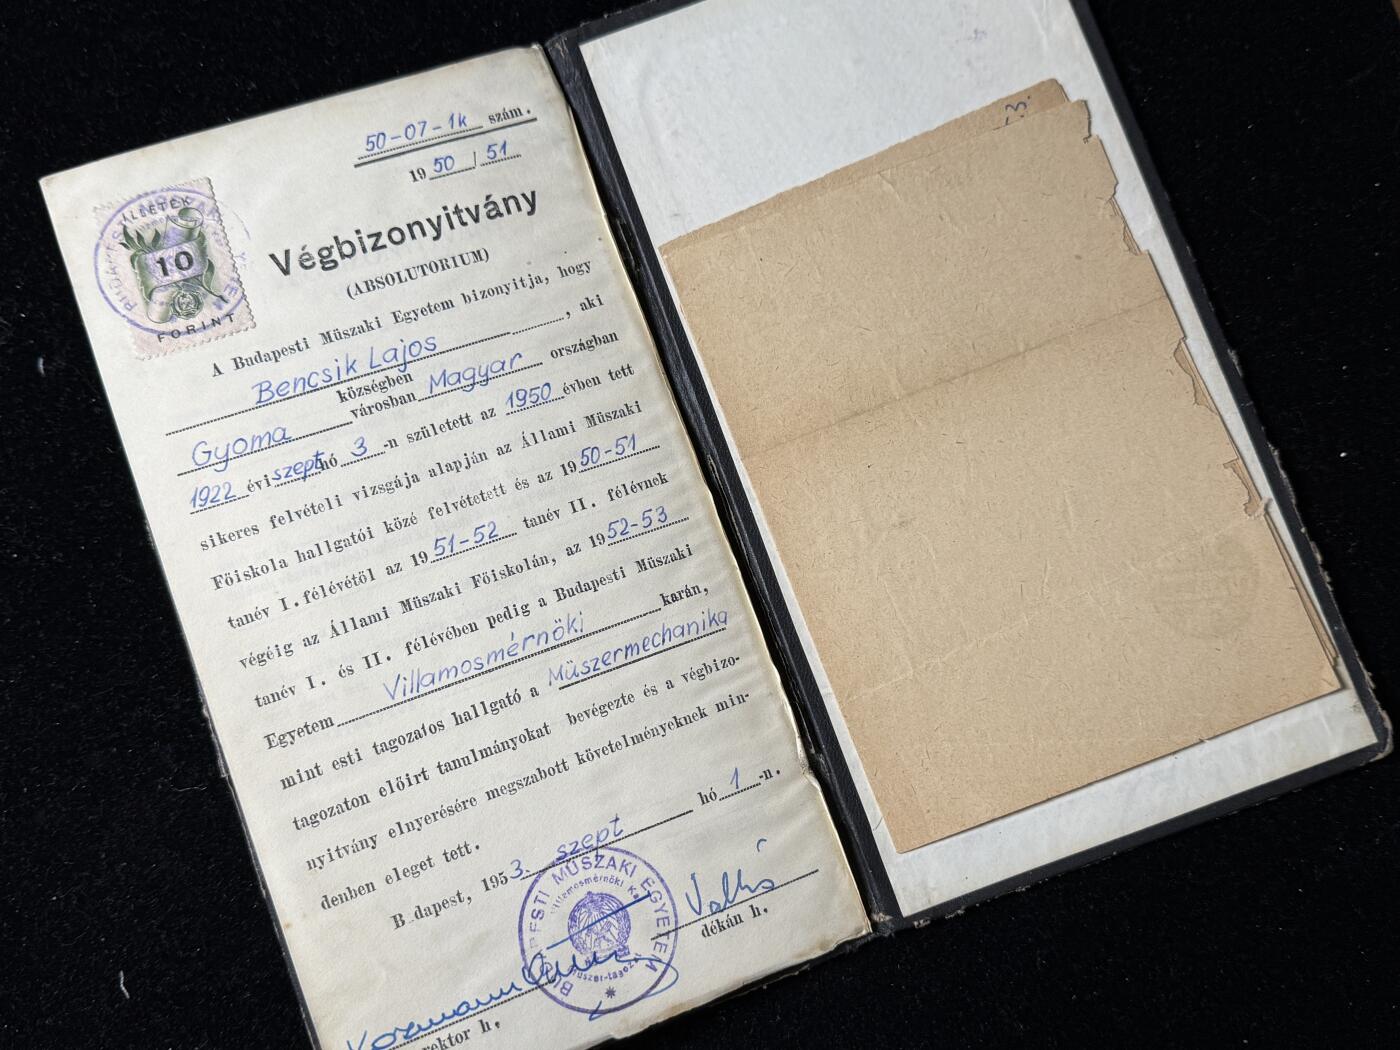 50-07-1k szám.
1950/51
ILLETÉK
10
FORINT
Végbizonyitvány
(ABSOLUTORIUM)
A Budapesti Müszaki Egyetem bizonyitja, hogy
Bencsik Lajos, aki
Gyoma községben városban Magyar országban
1922 évi szept hó 3-n született az 1950 évben tett
sikeres felvételi vizsgája alapján az Állami Müszaki
Föiskola hallgatói közé felvétetett és az 1950-51
tanév I. félévétöl az 1951-52 tanév II. félévnek
végéig az Állami Müszaki Föiskolán, az 1952-53
tanév I. és II. félévében pedig a Budapesti Müszaki
Egyetem Villamosmérnöki karán,
mint esti tagozatos hallgató a Müszermechanika
tagozaton elöirt tanulmányokat bevégezte és a végbizo-
nyitvány elnyerésére megszabott követelményeknek min-
denben eleget tett.
B dapest, 1953. szept hó 1-n.
BUDAPESTI MÜSZAKI EGYETEM
Villamosmérnöki K.
Müszer-tagozat
dékán h.
rektor h.